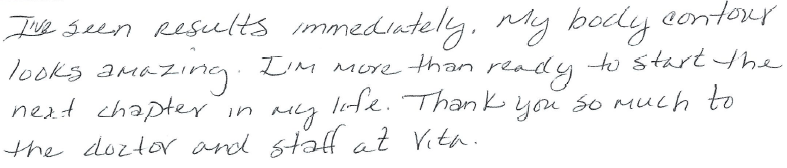 I've seen results immediately. My body contour
looks amazing. I'm more than ready to start the
next chapter in my life. Thank you so much to
the doctor and staff at Vita.